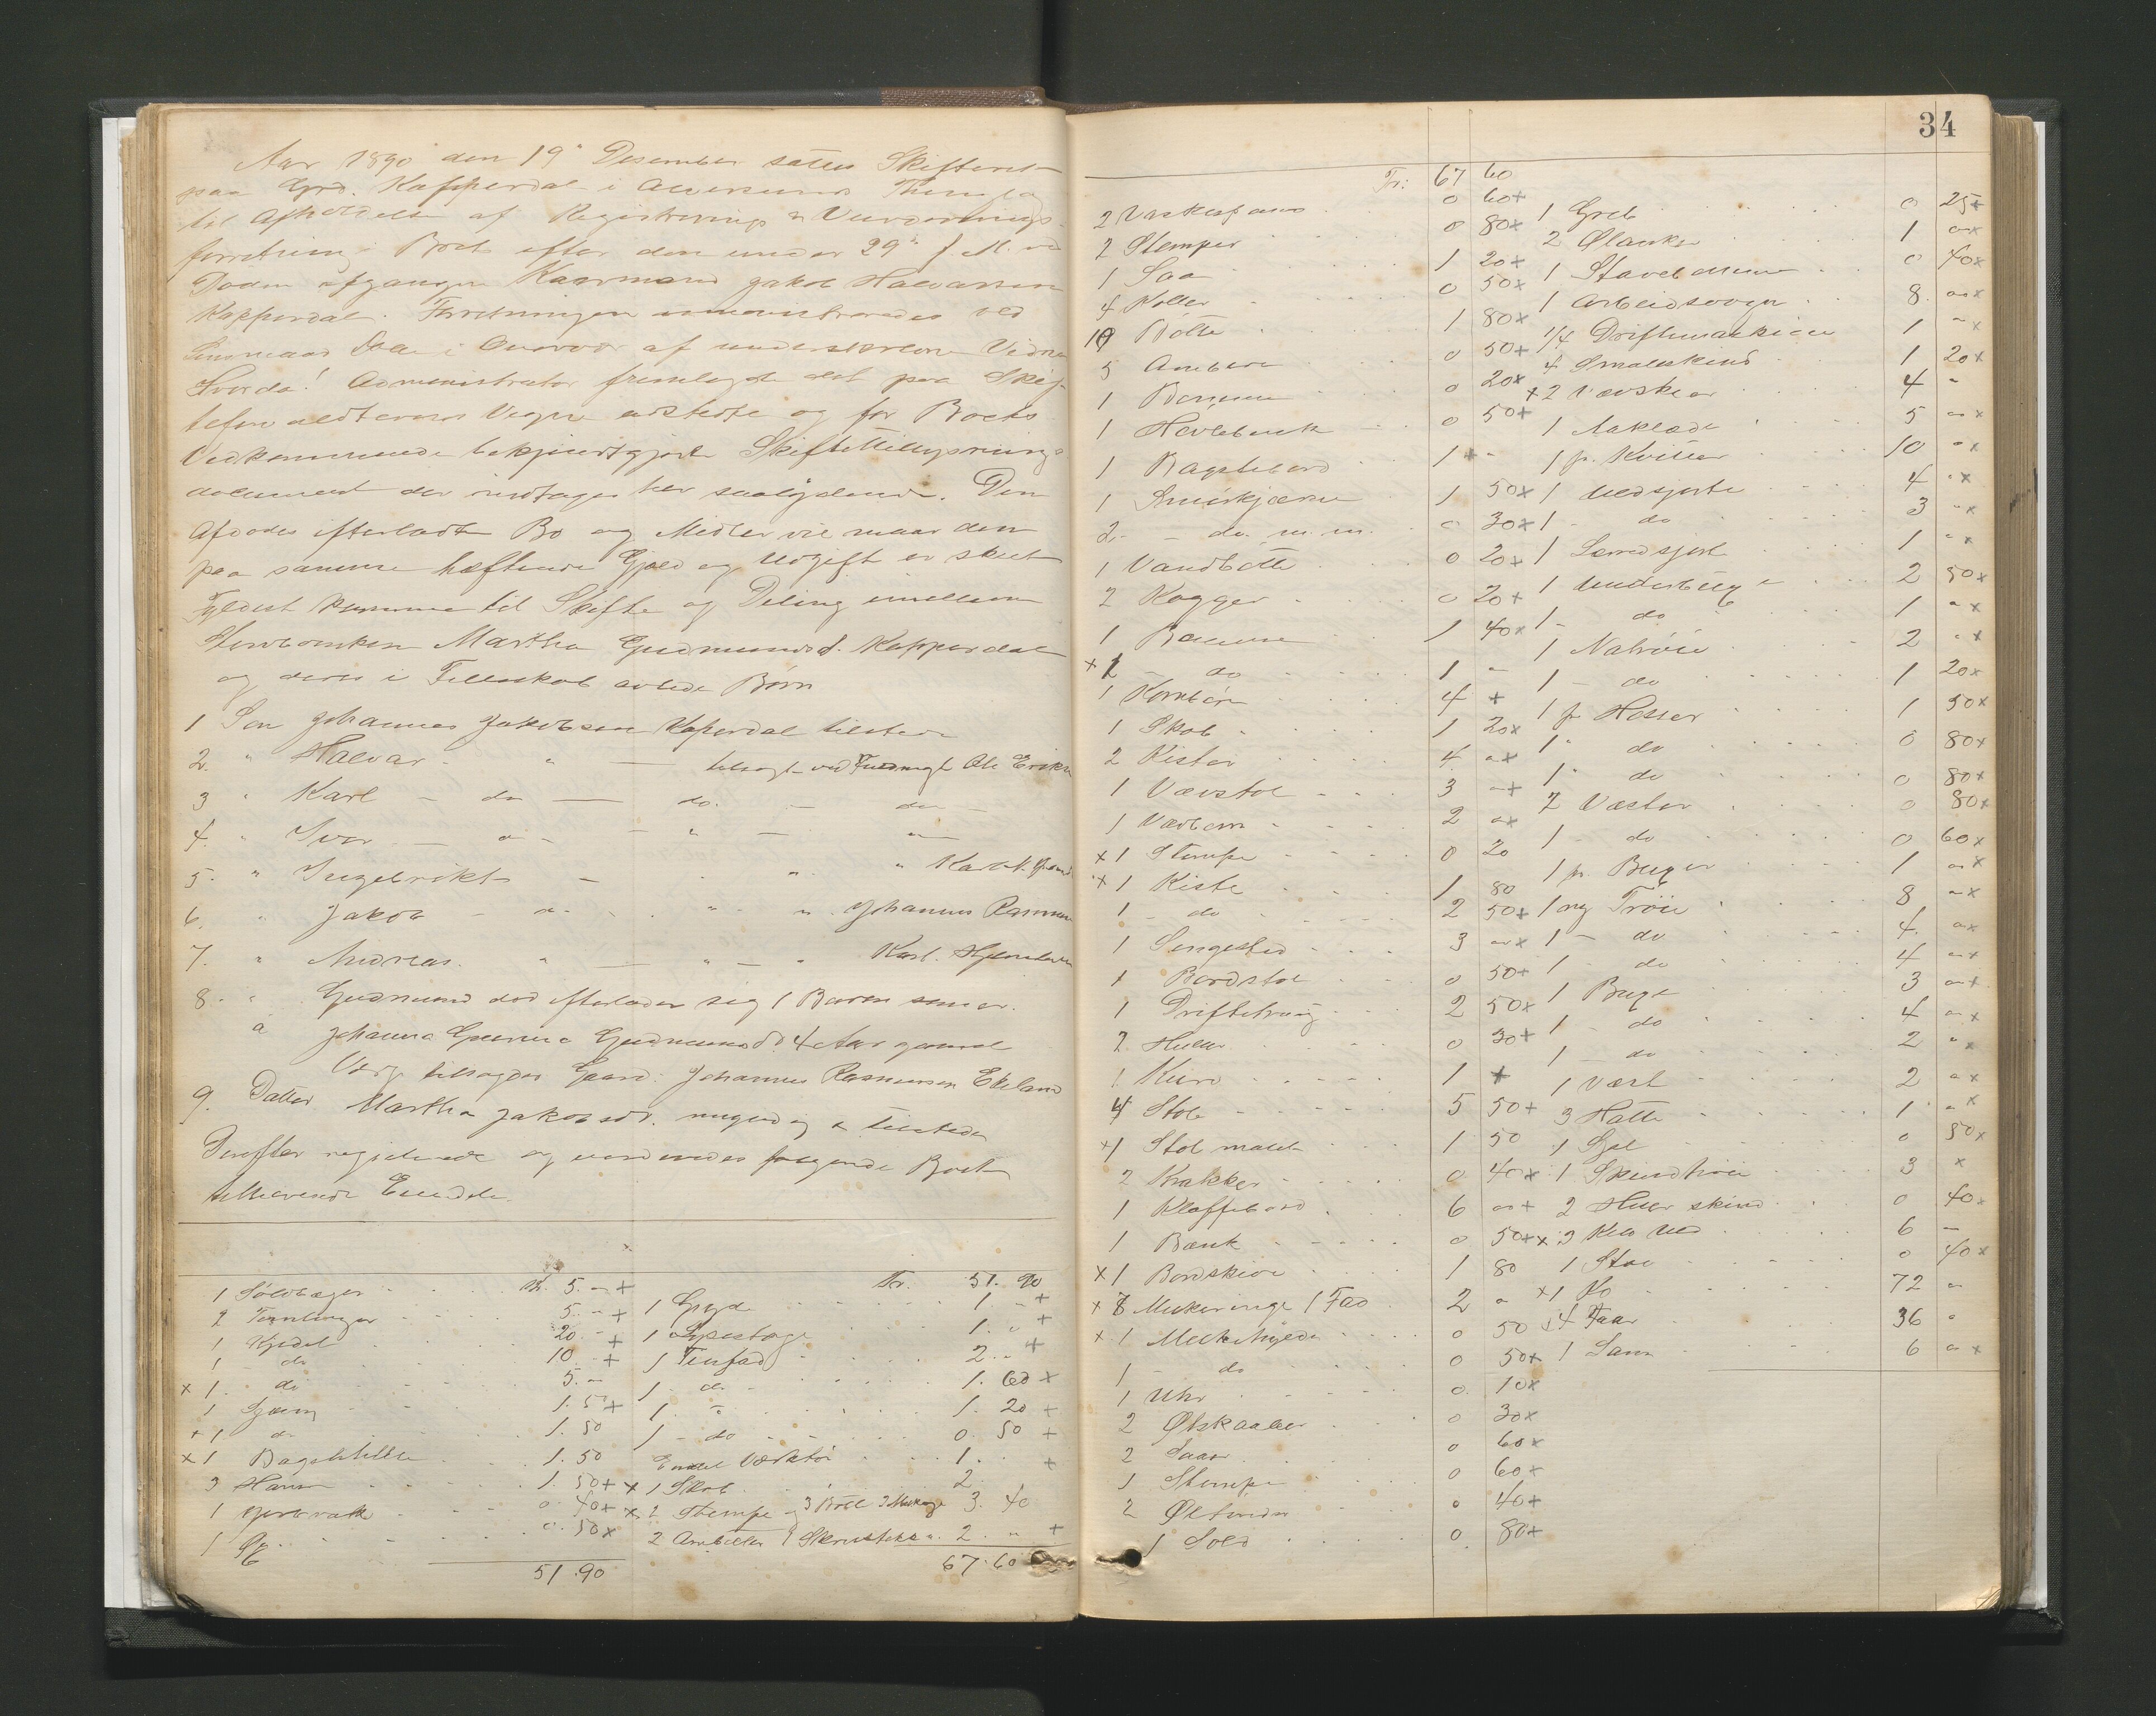 Aar 1890 den 19de Desember sattes Skifteret
paa Grd. Kapperdal i Alversunds Thinglag
til Afholdelse af Registrerings & Vurderings-
forretning i Boet efter den under 29de f. M. ved
Døden afgangne Kaarmand Jakob Halvarsen
Kapperdal. Forretningen administreredes ved
Lensmand i Overvær af undertegnede Vidner
Hvorda! Administrator fremlagde det paa Skif-
teforvalterens Vegne udstedte og for Boets
Vedkommende bekjendtgjorte Skiftetillysnings-
document der indtages her saalydende. Den
Afdødes efterladte Bo og Midler vie maar den
paa samme hæftende Gjæld og Udgift er skeet
Fyldest komme til Skifte og Deling imellem
Stervboenken Martha Gudmundsd. Kapperdal
og deres i Fællesskab avlede Børn
1 Søn Johannes Jakobsen Kaperdal tilstede
2. " Halvar " — tilsagt ved Fuldmægt. Ole Eriks
3 " Karl — do — do. — do —
4. " Iver — " — " — "
5. " Ingebrikt — " " Karl H.
6. " Jakob — " — " " Johannes Rasmusen
7. " Andreas. " — " — " Karl. Hjelmtveit
8. " Gudmund død efterlader sig 1 Barn som er.
a Johanna Gurina Gudmundsd. 4 Aar gammel
Værge tilsagdes Gaard. Johannes Rasmusen Ekeland
9. Datter Martha Jakobsdr. myndig & tilstede
Derefter registrerede og vurderedes følgende Boet
tilhørende Eiendele.
1 Sølvbæger Kr. 5. " +
2 Tumlinger 5. " +
1 Kjedel 20. " +
1 do 10 " +
x 1. do 5. "
1 Gjæng 1. 5" +
+ 1 do 1. 50
x 1 Bagstehelle 1. 50
3 Ham 1. 50 +
1 0. 40 +
1 0. 50 x
51.90
Fr. 51. 90
1 Gryde 1 " +
1 Lysestage 1. " +
1 Tinfad 2. " +
1 do 1. 60 x
1. " 1. 20 +
1 - do 0. 50 +
Endel Værktøi 1. . +
x 1 Skab 2.
x 2 Stampe og 3 Bøtte 3 3. 40
2 Ambolter 1 Skruestikke 2. " +
67.60
34
Fr: 67 60
2 Vaskespand 0 60 +
2 Stamper 0 80 x
1 Saa 1 20 +
4 Koller 0 50 x
10 Bøtte 1 80 x
5 Ambere 0 50 +
1 Bomme 0 20 x
1 Høvlebenk 0 50 +
1 Bagstebord 1 + "
1 Smørkjærne 1 50 x
2. - do. m. m. 0 30 x
1 Vandbøtte 0 20 +
2 Kagger 0 20 +
1 Bomme 1 40 x
x 1 - do 1 "
1 Kornbøre 4 +
1 Skab 1 20 x
2 Kister 4 " x
1 Vævstol 3 " +
1 Vævbom 2 " x
x 1 Stampe 0 20
x 1 Kiste 1 80
1 - do 2 50 +
1 Sengested 3 " x
1 Bordstol 0 50 +
1 Driftetrug 2 50 x
2 Huer 0 30 +
1 Kurv 1 +
4 Stole 5 50 +
x 1 Stol malet 1 50
2 Krakker 0 40 x
1 Klaffebord 6 " +
1 Bænk 0 50 +
x 1 Bordskive 1 80
x 8 Melkeringe 1 Fad 2 "
x 1 Melkebøtte 0 50
1 - do 0 50 +
1 Uhr 0. 10 x
2 Ølskaaler 0 30 x
2 Saaer 0 60 x
1 Stampe 0 60 x
2 Øltønder 0 40 +
1 Sold 0. 80 +
1 Greb 0 25 +
2 Ølanker 1 " x
1 0 40 x
1 Arbeidsvogn 8. " x
1/4 Driftemaskine 1 " x
4 Smaleskind 1 20 x
x 2 Vævskeer 4 "
1 Aaklæde 5 " x
1 p. Kvitler 10 " x
1 Uldsjorte 4 " x
1 - do 3 " x
1 Lærredsjort 1 " x
1 Underbuxe 2 50 x
1 - do 1 " x
1 Nattrøie 2 " x
1 - do 1 20 x
1 p. Hosser 1 50 x
1 " do 0 80 x
1 " do 0 80 x
2 Væster 0 80 x
1 - do 0 60 x
1 p. Buxer 1 " x
1 ny Trøie 8 " x
1 - do 4. " x
1 - do 4 " x
1 Buxe 3 " +
1 - do 4 " x
1 - do 2 " x
1 Væst 2 " x
3 Hatte 1 " x
1 Sjal 0 50 x
1 Skindtrøie 3 x
2 Huer skind 0 40 x
x 3 Kilo Uld 6 —
1 Stav 0 40 x
x 1 Ko 72 "
x 4 Faar 36 "
1 Lam 6 " x